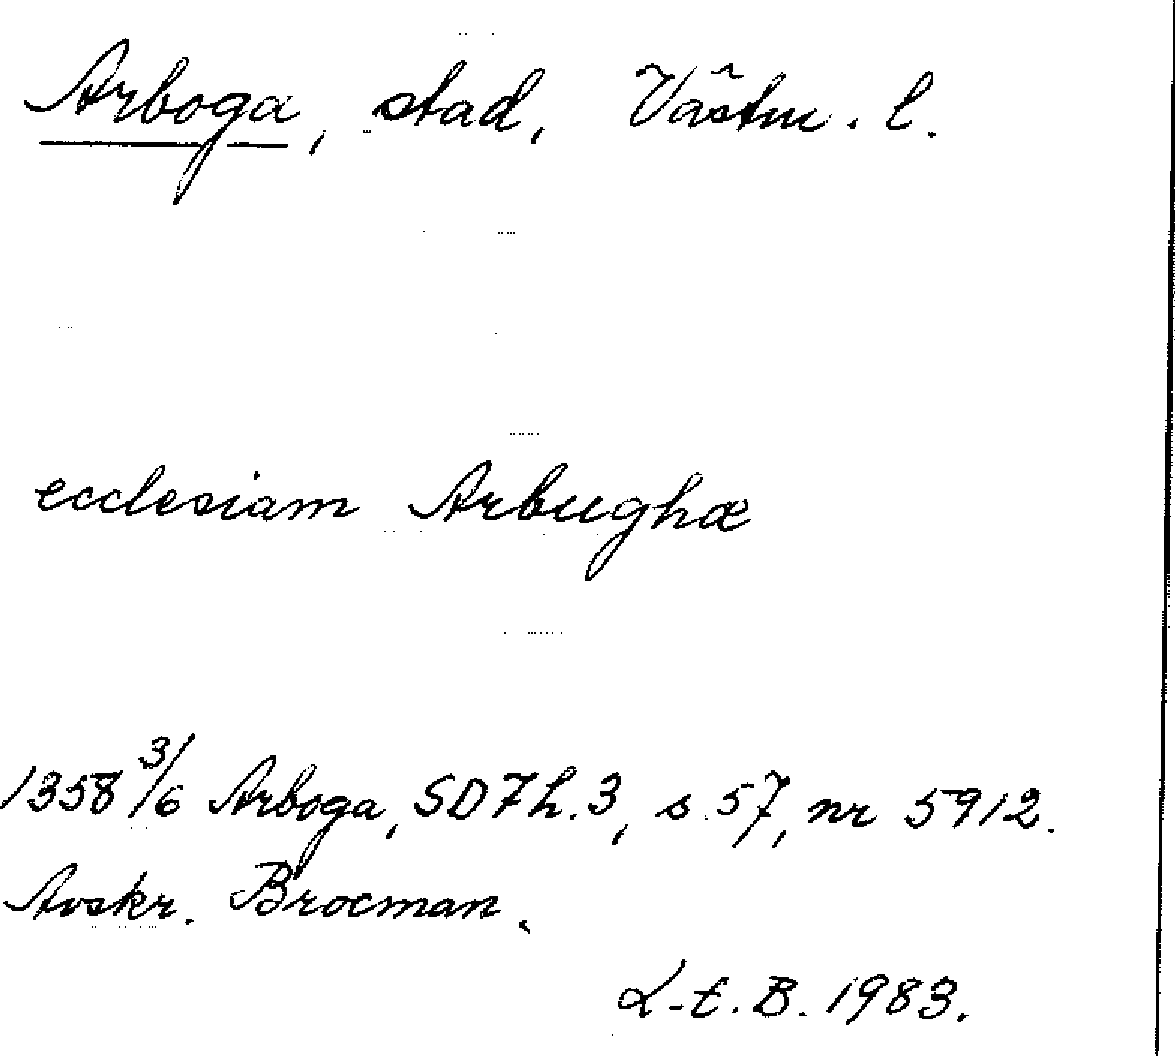 Arboga, stad, Västm. l.
ecclesiam Arbughæ
1358 3/6 Arboga, SD 7 h. 3, s. 57, nr 5912.
Avskr. Brocman.
L-t. B. 1983.